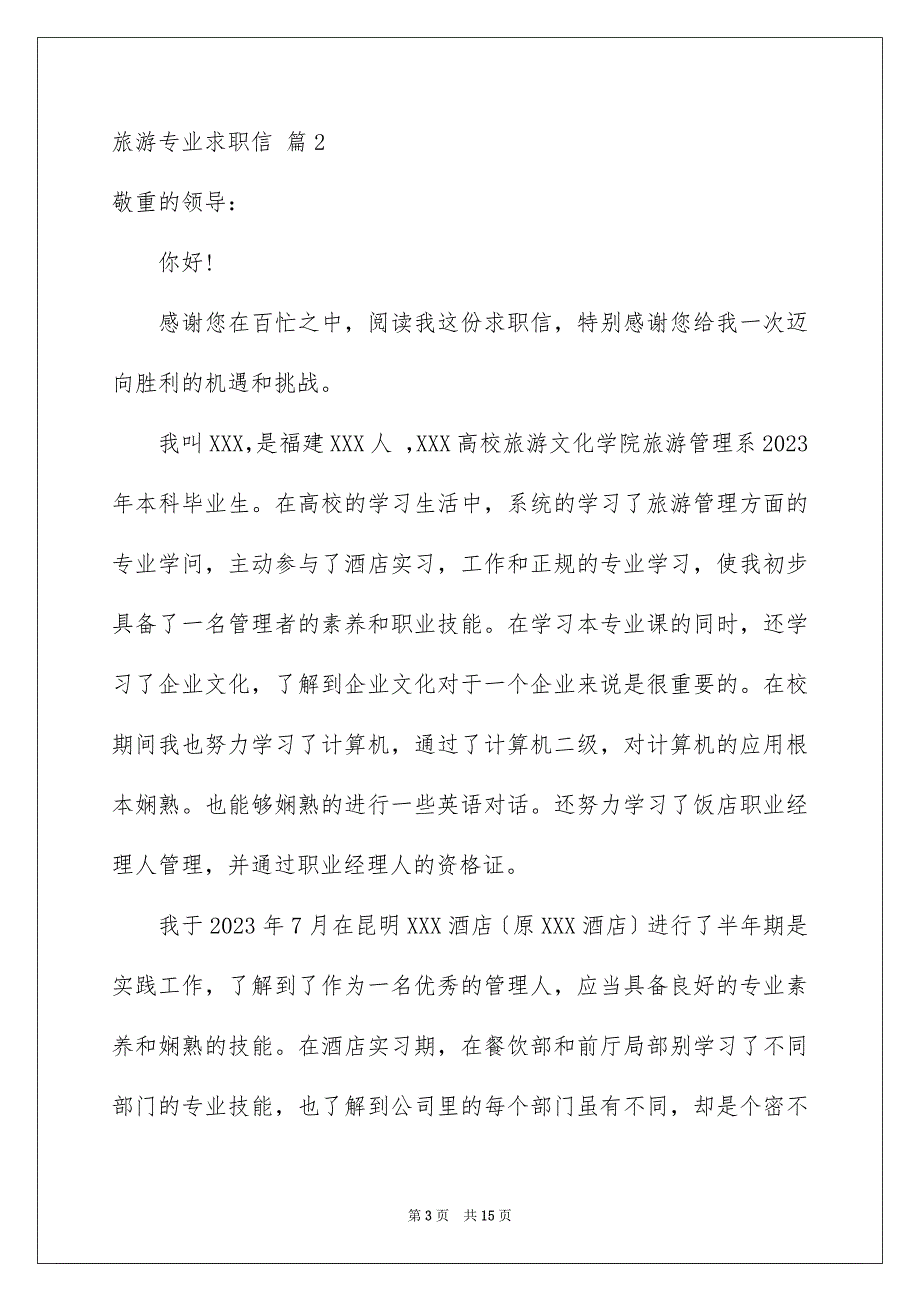 旅游专业求职信 篇2
敬重的领导：
你好!
感谢您在百忙之中，阅读我这份求职信，特别感谢您给我一次迈
向胜利的机遇和挑战。
我叫 XXX,是福建 XXX 人 ,XXX 高校旅游文化学院旅游管理系 2023
年本科毕业生。在高校的学习生活中，系统的学习了旅游管理方面的
专业学问，主动参与了酒店实习，工作和正规的专业学习，使我初步
具备了一名管理者的素养和职业技能。在学习本专业课的同时，还学
习了企业文化，了解到企业文化对于一个企业来说是很重要的。在校
期间我也努力学习了计算机，通过了计算机二级，对计算机的应用根
本娴熟。也能够娴熟的进行一些英语对话。还努力学习了饭店职业经
理人管理，并通过职业经理人的资格证。
我于 2023 年 7 月在昆明 XXX 酒店〔原 XXX 酒店〕进行了半年期是
实践工作，了解到了作为一名优秀的管理人，应当具备良好的专业素
养和娴熟的技能。在酒店实习期，在餐饮部和前厅局部别学习了不同
部门的专业技能，也了解到公司里的每个部门虽有不同，却是个密不
第 3 页 共 15 页